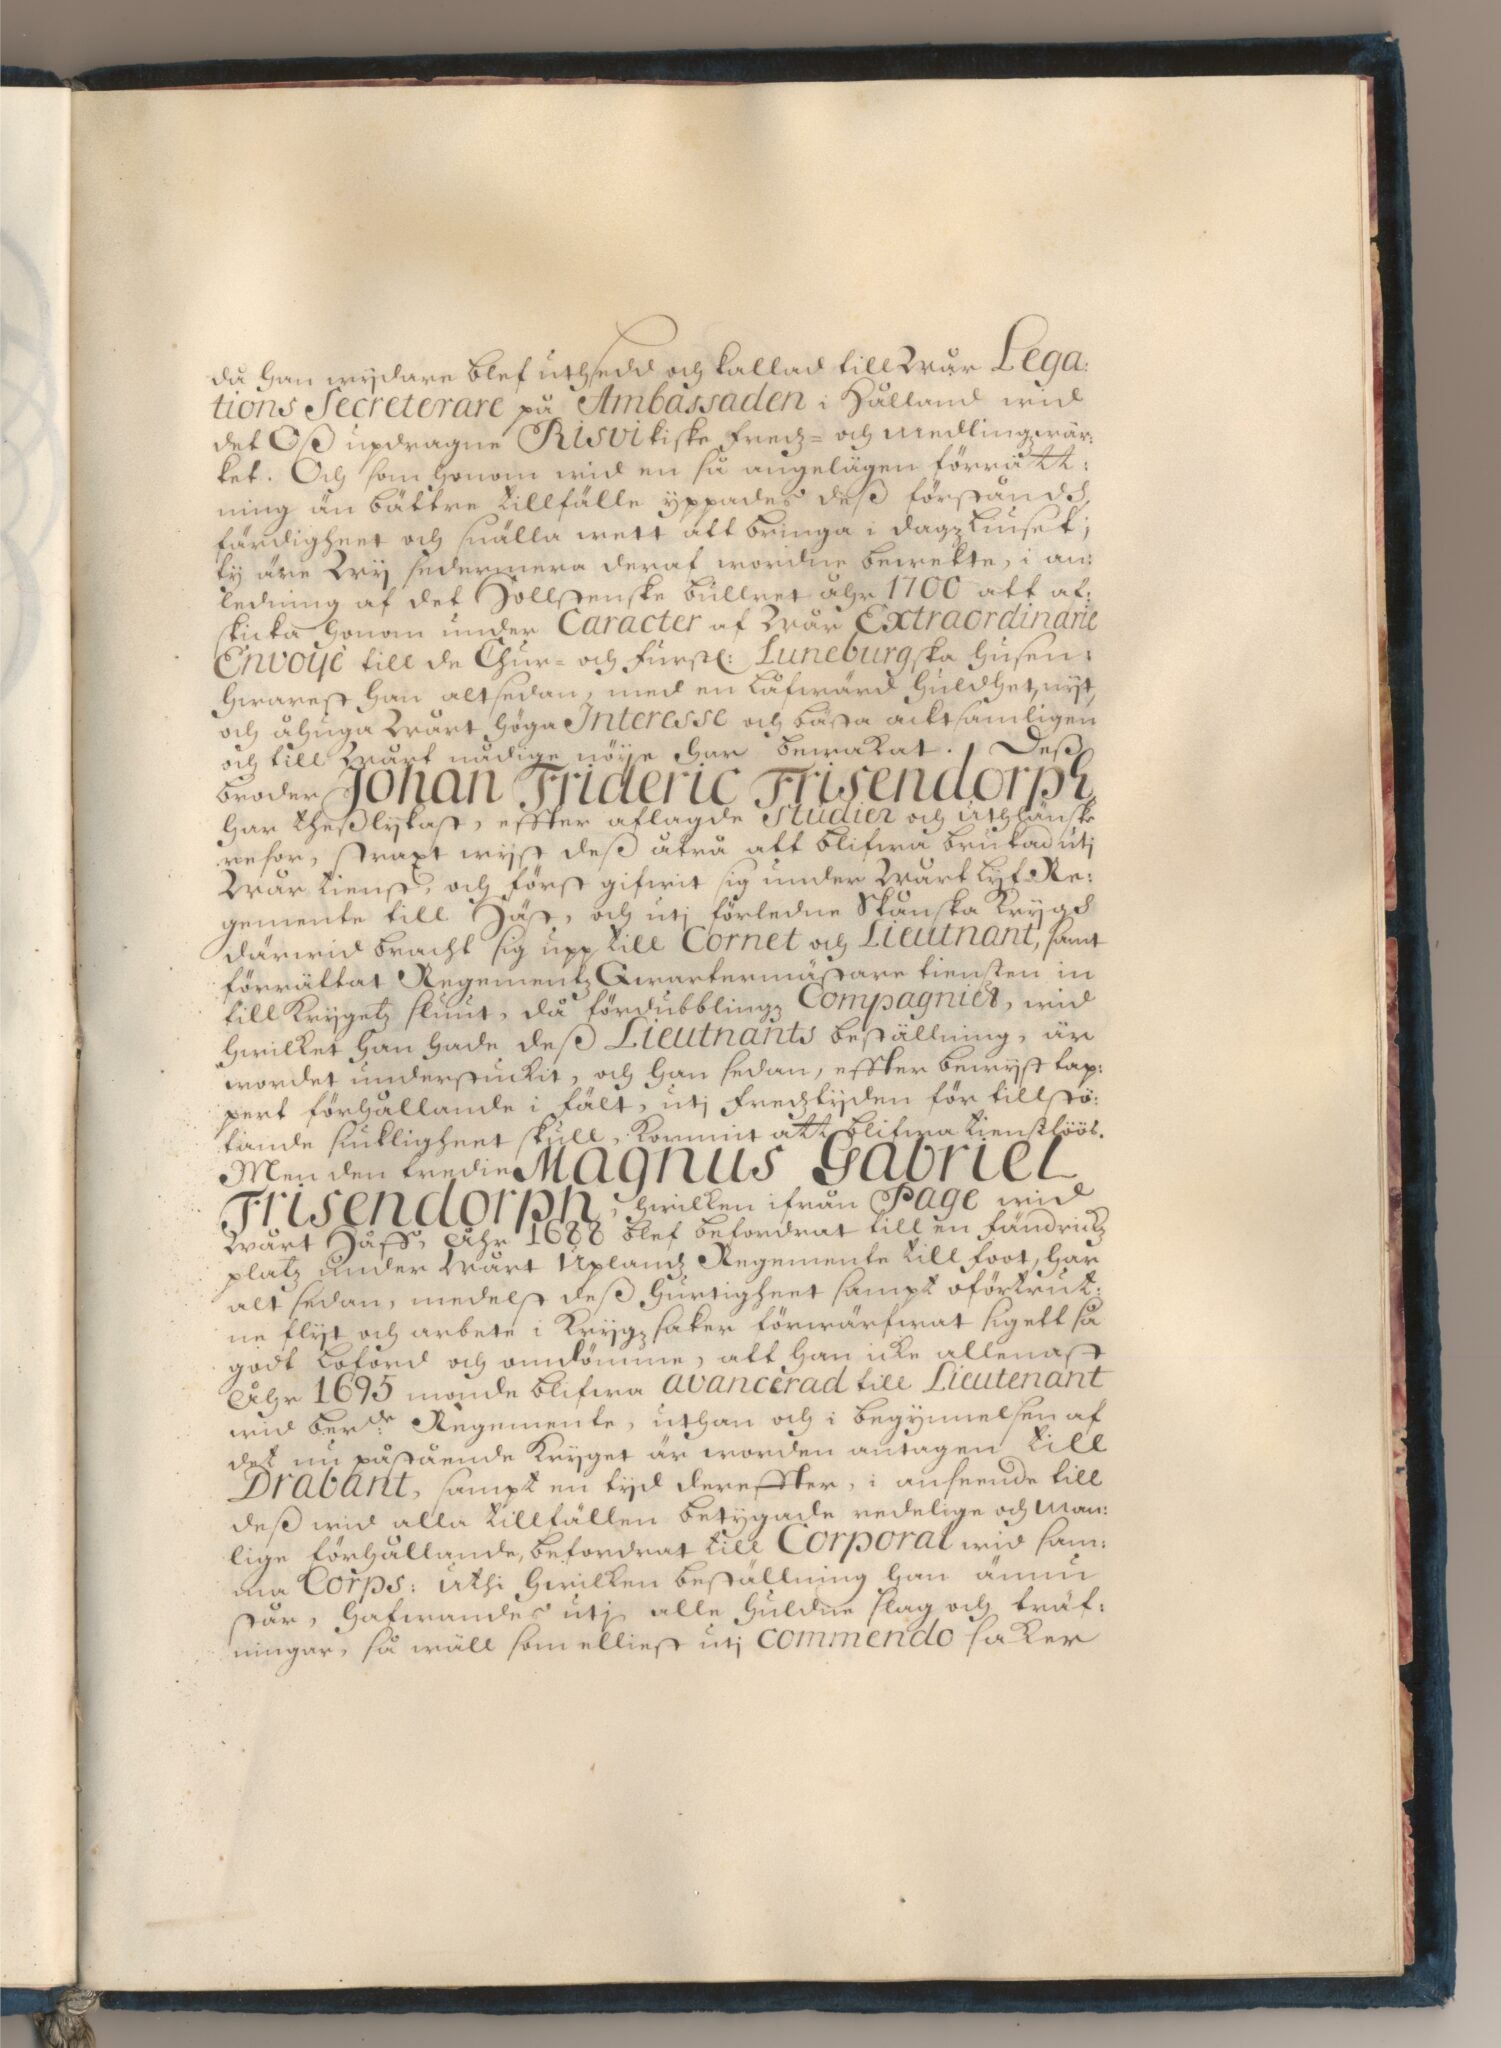 då han wydare blef uthsedd och kallad till Wår Lega:
tions Secreterare på Ambassaden i Hålland wid
det Oß updragne Risvikiske Fredz= och Medlingzwär:
ket. Och som honom wid en så angelägen förrätt:
ning än bättre tillfälle yppades deß förstånd,
färdigheet och snälla wett att bringa i dagzliuset;
ty äre Wij sedermera deraf wordne bewekte, i an:
ledning af det Hollstenske bullret åhr 1700 att af:
skicka honom under Caracter af Wår Extraordinarie
Envoyé till de Chur= och Furstl: Luneburgska Husen:
hwarest han altsedan, med en låfwärd huldhet, nijt,
och åhuga Wårt höga Interesse och bästa acktsamligen
och till Wårt nådige nöije har bewakat. Deß
broder Johan Frideric Frisendorph
har theßlykast, effter aflagde Studier och Uthländske
resor, straxt wijst deß åtrå att blifwa brukad utj
Wår tienst, och först gifwit sig under Wårt Lyf Re:
gemente till Häst, och utj förledne Skånska Krygd
därwid bracht sig upp till Cornet och Lieutnant, samt
förrättat Regementz Qwartermästare tiensten in
till Krygetz sluut, då fördubblingz Compagnier, wid
hwilket han hade deß Lieutnants beställning, är
wordet understuckit, och han sedan, effter bewyst tap:
pert förhållande i fält, utj Fredztyden för tillstö:
tande siukligheet skull, kommit att blifwa tienstlöös.
Men den tredie Magnus Gabriel
Frisendorph, hwilken ifrån Page wid
Wårt Håff, Åhr 1688 blef befordrat till en fändrickz
platz under Wårt Uplandz Regemente till foot, har
alt sedan, medelst deß hurtigheet sampt oförtrut:
ne flyt och arbete i Krygzsaker förwärfwat sig ett så
godt loford och omdömme, att han icke allenast
Åhr 1695 monde blifwa avancerad till Lieutenant
wid ber:de Regemente, uthan och i begynnelsen af
det nu påstående Kryget är worden antagen till
Drabant, sampt en tyd dereffter, i anseende till
deß wid alla tillfällen betygade redelige och man:
lige förhållande, befordrat till Corporal wid sam:
ma Corps: uthi hwilken beställning han ännu
står, hafwandes utj alle huldne slag och träf:
ningar, så wäll som elliest utj commendo saker